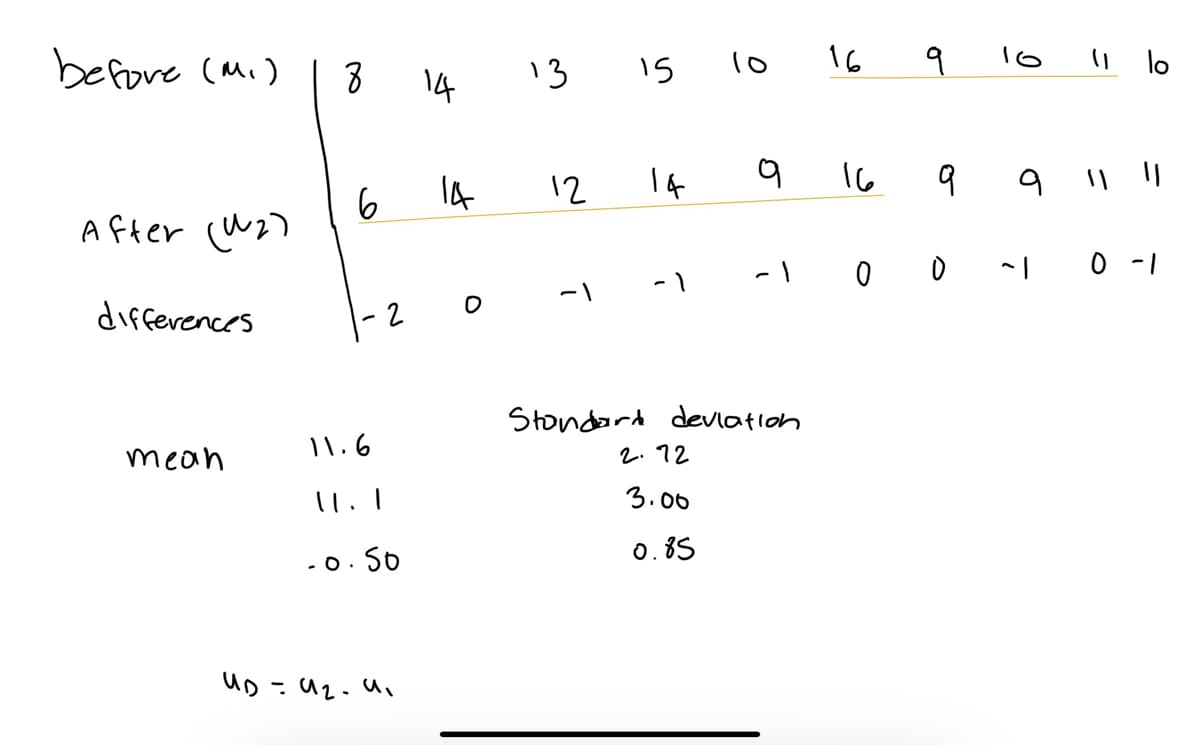 before (M₁) | 8 14 13 15 10 16 9 10 11 10
After (M₂) 6 14 12 14 9 16 9 9 11 11
differences -2 0 -1 -1 -1 0 0 -1 0 -1
Standard deviation
mean 11.6 2.72
11.1 3.00
-0.50 0.85
u_D = u₂ - u₁